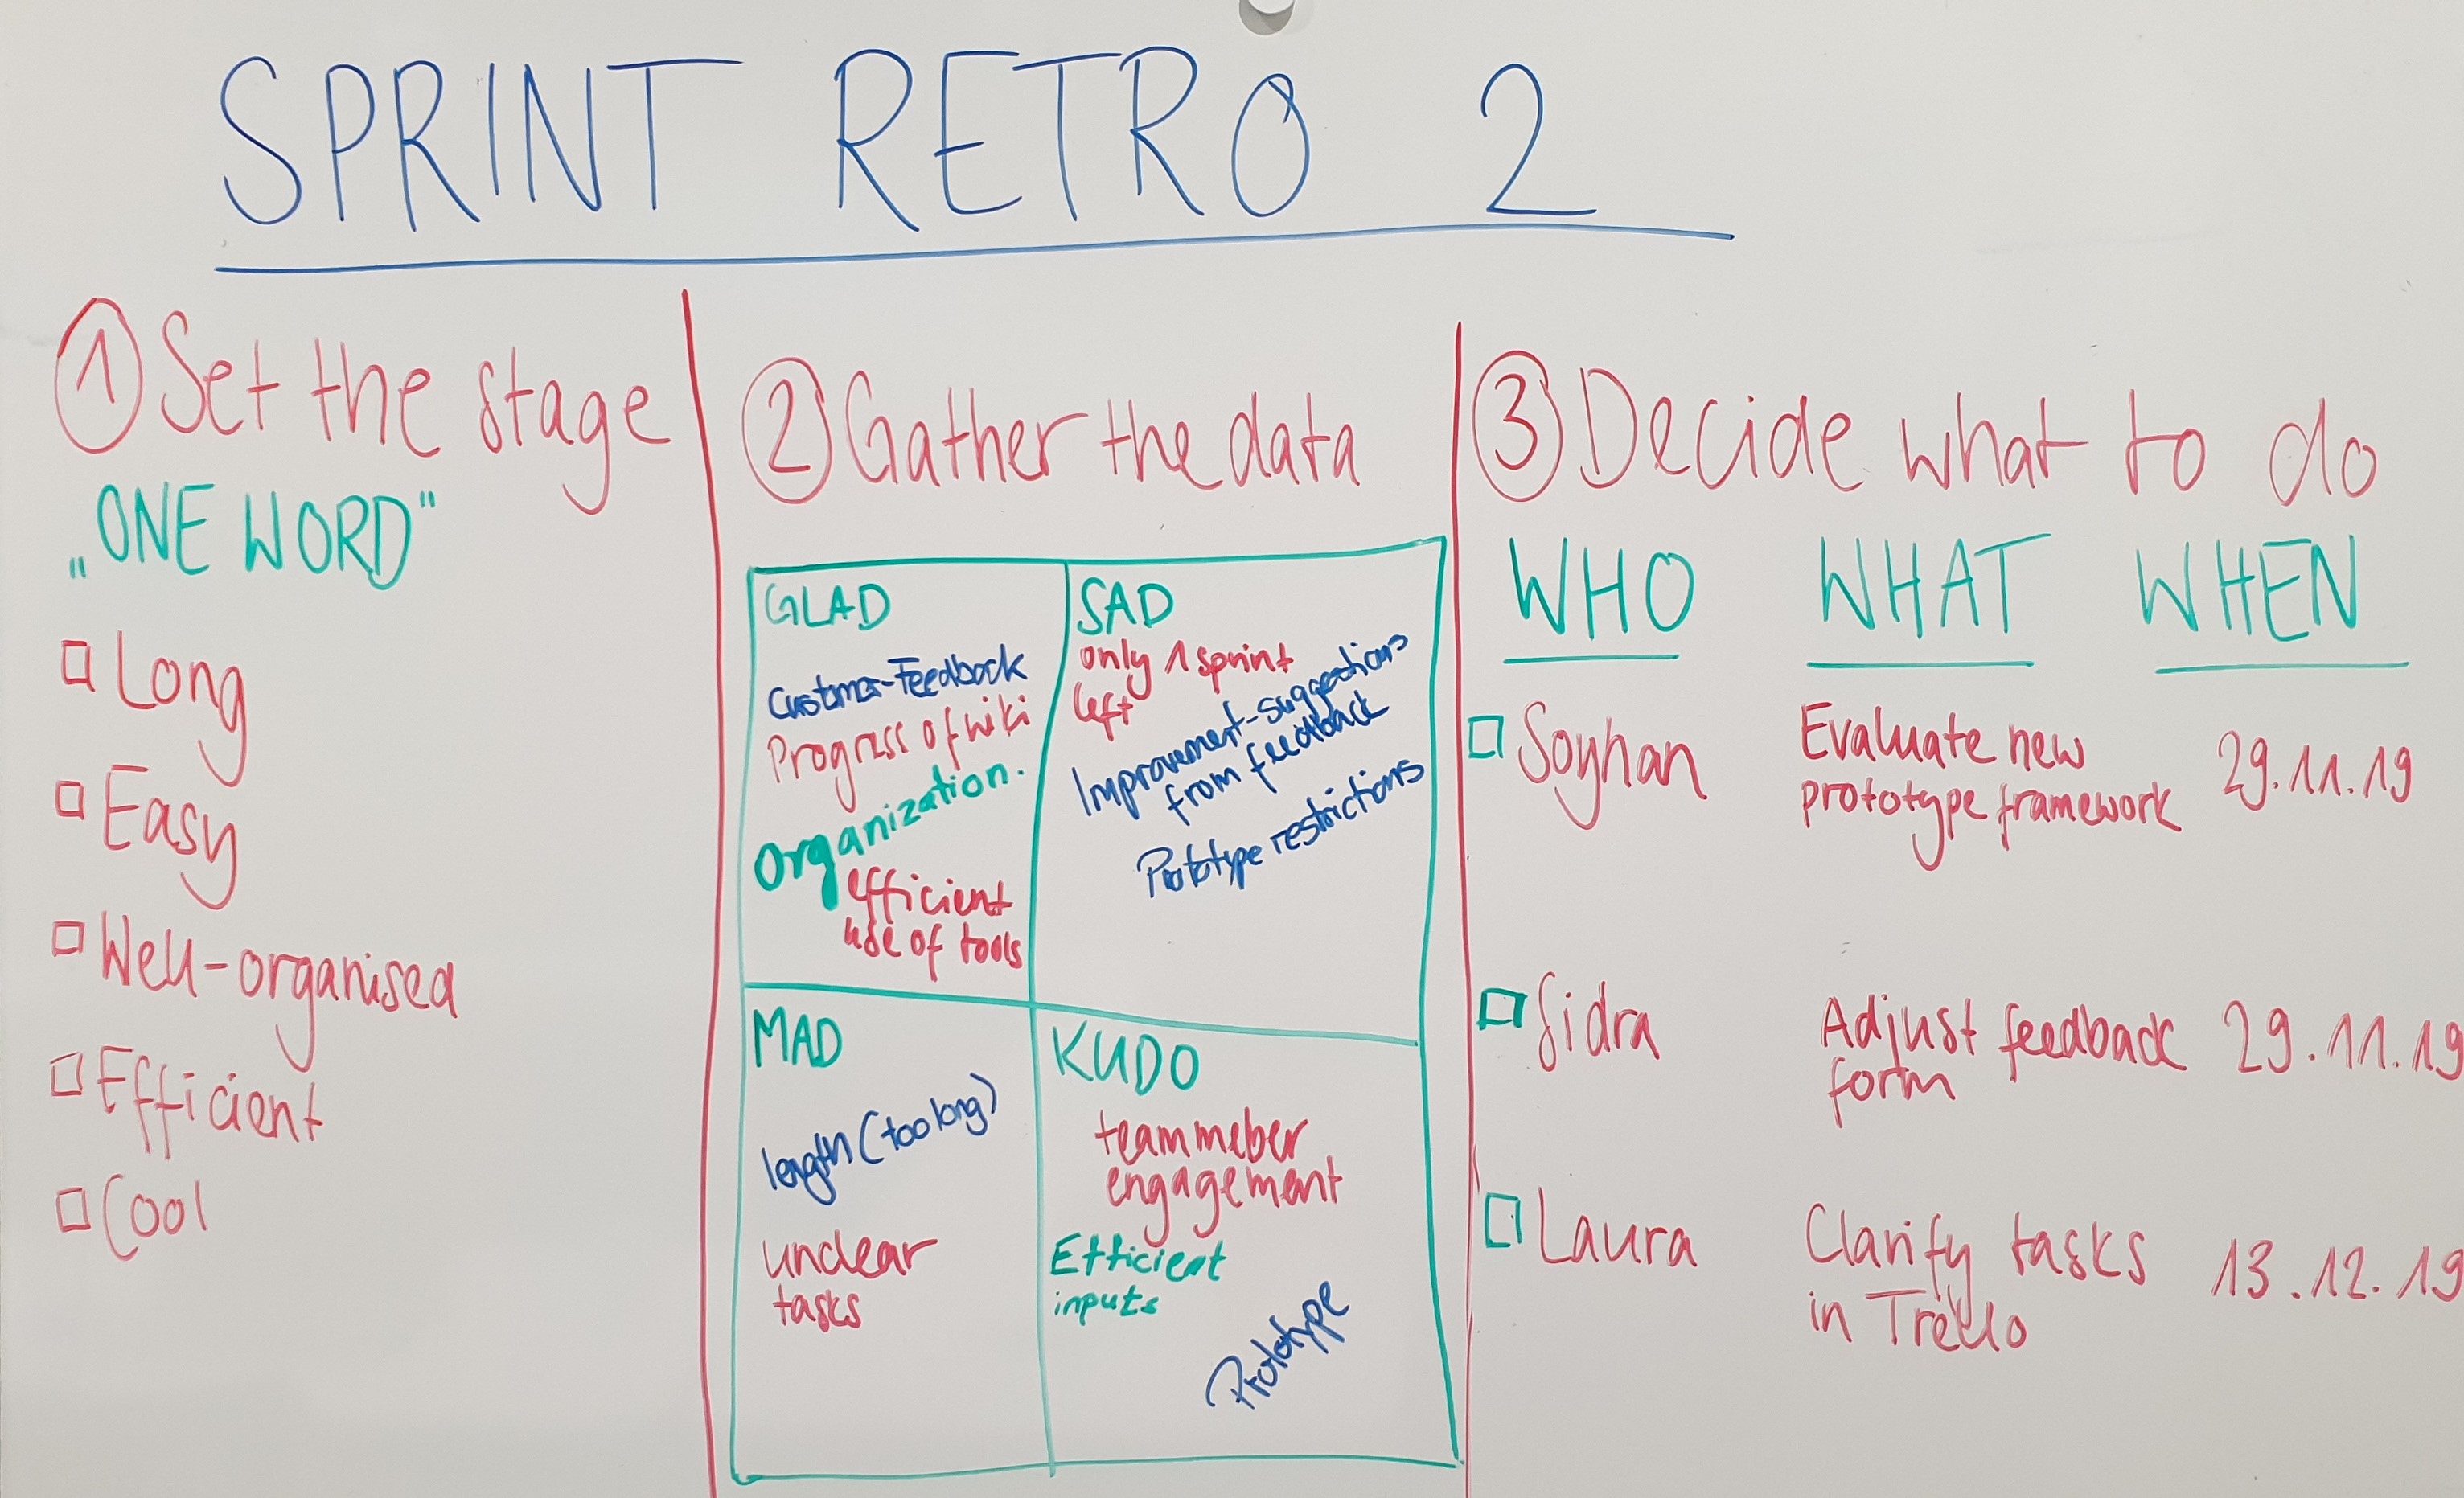 SPRINT RETRO 2
1 Set the stage
„ONE WORD"
Long
Easy
Well-organised
Efficient
Cool
2 Gather the data
GLAD
Customer-Feedback
Progress of wiki
Organization.
efficient
use of tools
SAD
only 1 sprint
left
Improvement-suggestions
from feedback
Prototype restrictions
MAD
length (too long)
unclear
tasks
KUDO
teammeber
engagement
Efficient
inputs
Prototype
3 Decide what to do
WHO WHAT WHEN
Soyhan Evaluate new 29.11.19
prototype framework
Sidra Adjust feedback 29.11.19
form
Laura Clarify tasks 13.12.19
in Trello